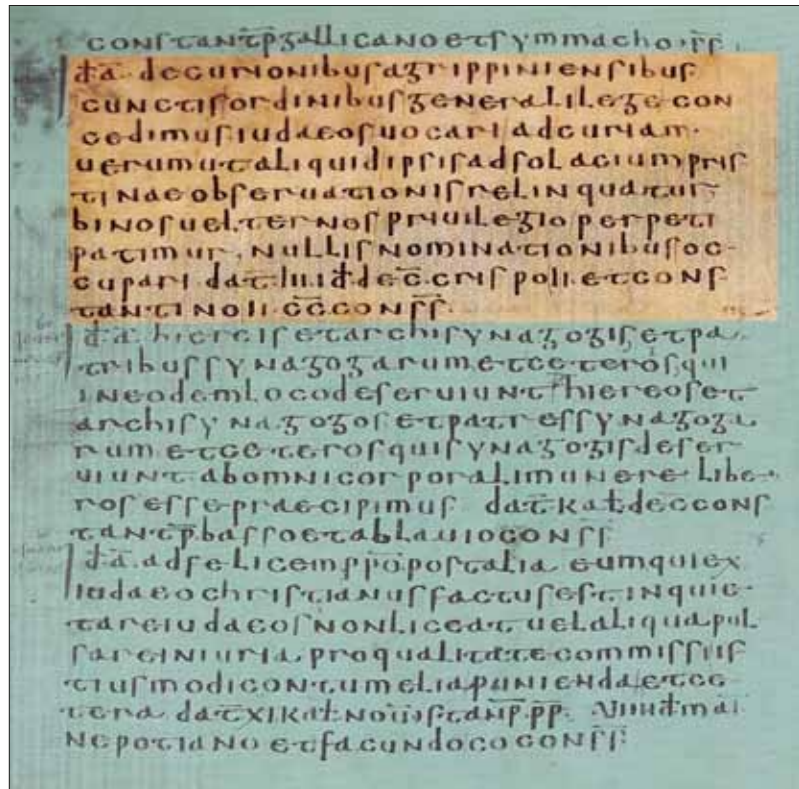 constant̅p̅gallicanoetsymmacho·s̅s̅·
d̅a̅ decurionibusagrippiniensibus
cunctisordinibusgeneralilegecon
cedimusiudaeosuocariadcuriam·
uerumutaliquidipsisadsolaciumpris
tinaeobseruationisrelinquatur
binosuelternospriuilegioperpeti
patimur, nullisnominationibusoc
cupari dat̅ iii id̅ dec̅ crispo ii etcons
tantino ii c̅c̅ cons̅s̅·
d̅a̅ hiereisetarchisynagogisetpa
tribussynagogarumetceterosqui
ineodemlocodeseruiunt hiereoset
archisynagogosetpatressynagoga
rumetceterosquisynagogisdeser
uiunt abomnicorporalimunerelibe
rosessepraecipimus dat̅ kal̅ dec̅ cons
tant̅p̅ bassoetablauiocons̅s̅
d̅a̅ adfelicemp̅p̅o postalia eumquiex
iudaeochristianusfactusestinquie
tareiudaeosnonliceatuelaliquapul
sareiniuria proqualitatecommissiis
tiusmodicontumeliapuniendaetce
tera dat̅ xi kal̅
nepotianoetfacundococons̅s̅